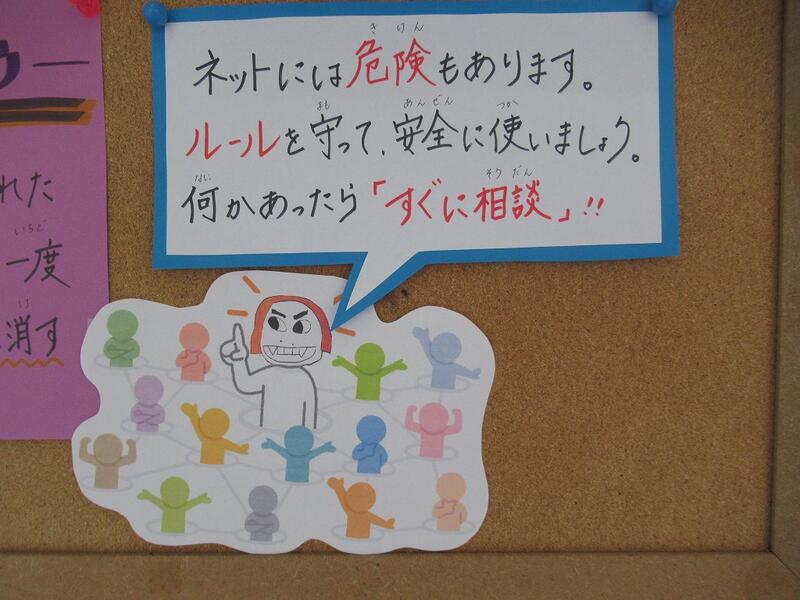 ウー
れた
いちど
一度
け
消す
きけん
ネットには危険もあります。
まも あんぜん つか
ルールを守って、安全に使いましょう。
なに そうだん
何かあったら「すぐに相談」!!